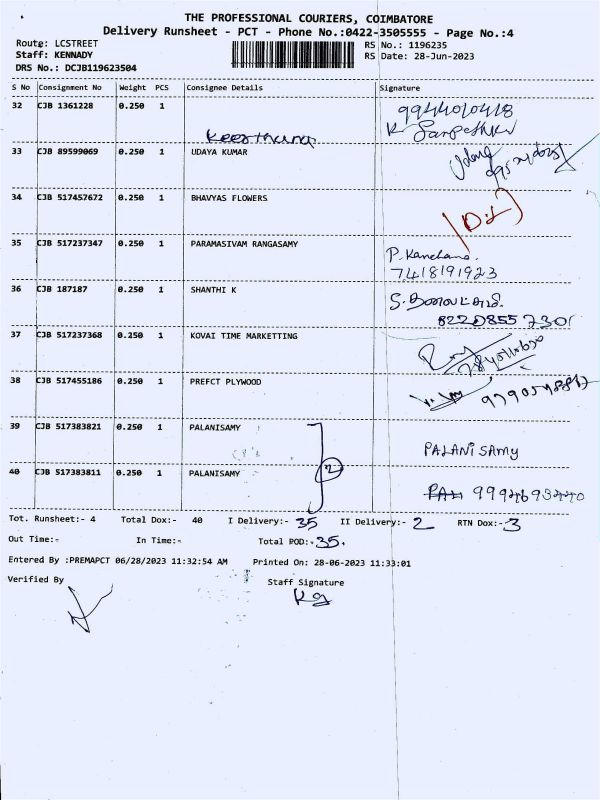 THE PROFESSIONAL COURIERS, COIMBATORE
Delivery Runsheet - PCT - Phone No.:0422-3505555 - Page No.:4
Route: LCSTREET RS No.: 1196235
Staff: KENNADY RS Date: 28-Jun-2023
DRS No.: DCJB119623504
S No Consignment No Weight PCS Consignee Details Signature
32 CJB 1361228 0.250 1 9944010418
Keerthana
33 CJB 89599069 0.250 1 UDAYA KUMAR
34 CJB 517457672 0.250 1 BHAVYAS FLOWERS
35 CJB 517237347 0.250 1 PARAMASIVAM RANGASAMY
P. Kanchana.
7418191923
36 CJB 187187 0.250 1 SHANTHI K
822D855 7301
37 CJB 517237368 0.250 1 KOVAI TIME MARKETTING
38 CJB 517455186 0.250 1 PREFCT PLYWOOD
39 CJB 517383821 0.250 1 PALANISAMY
2 PALANISAMY
40 CJB 517383811 0.250 1 PALANISAMY
9994693440
Tot. Runsheet:- 4 Total Dox:- 40 I Delivery:- 35 II Delivery:- 2 RTN Dox:- 3
Out Time:- In Time:- Total POD:- 35.
Entered By :PREMAPCT 06/28/2023 11:32:54 AM Printed On: 28-06-2023 11:33:01
Verified By Staff Signature